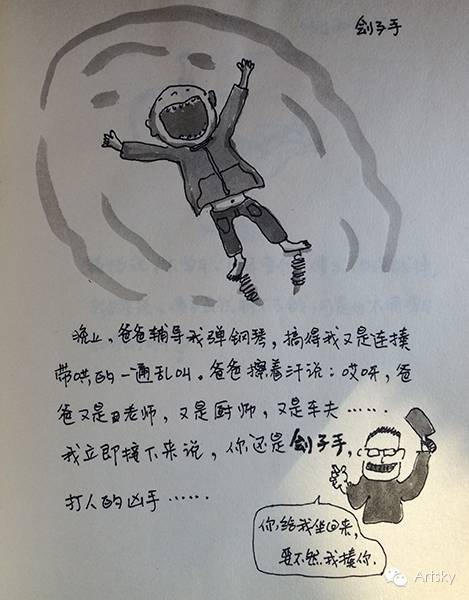 刽子手
晚上，爸爸辅导我弹钢琴，搞得我又是连揍
带哄的一通乱叫。爸爸擦着汗说：哎呀，爸
爸又是老师，又是厨师，又是车夫……
我立即接下来说，你还是刽子手，
打人的凶手……
你给我坐回来，
要不然我揍你.
Artsky